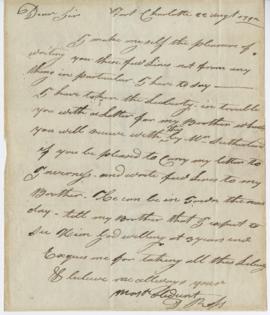 Dear Sir Fort Charlotte 22 Augt 1792
I make myself the pleasure of
writing you these few lines not from any
thing in particular I have to say —
I have taken the Liberty to trouble
you with a letter for my Brother which
you will receive with this by Mr. Sutherland
if you be pleased to Carry my letter to
Inverness and write few lines to my
Brother. He can be in Town the next
day - tell my Brother that I expect to
see Him God willing at 3 years end
Excuse me for taking all this Liberty
& believe me allways your
most Obedient
Ross